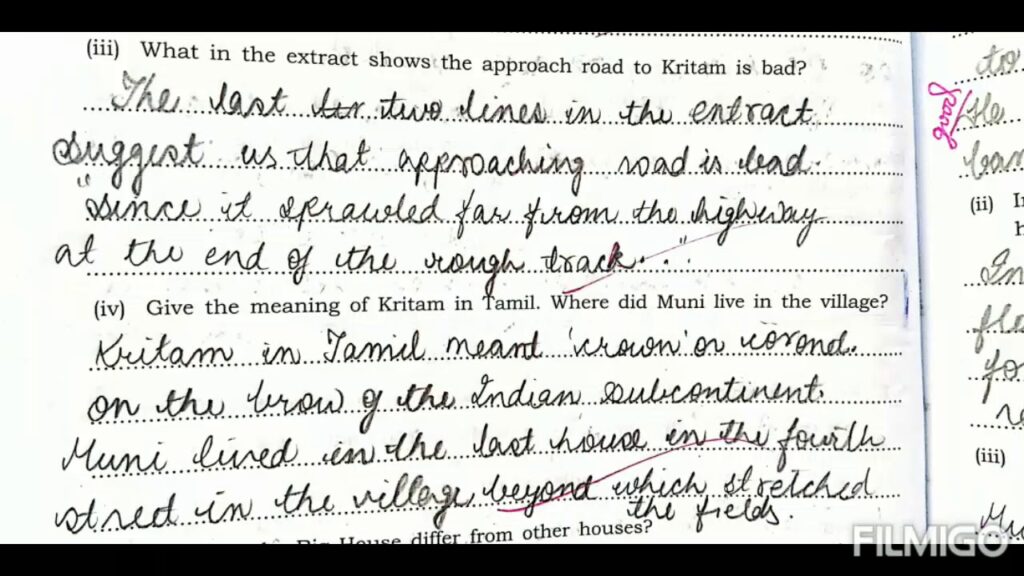 (iii) What in the extract shows the approach road to Kritam is bad?
The last two lines in the extract
suggest us that approaching road is bad.
"since it sprawled far from the highway
at the end of the rough track..."
(iv) Give the meaning of Kritam in Tamil. Where did Muni live in the village?
Kritam in Tamil meant 'crown' or corond.
on the brow of the Indian subcontinent.
Muni lived in the last house in the fourth
street in the village beyond which stretched
the fields.
Big House differ from other houses?
to
He
(ii)
In
for
(iii)
FILMIGO